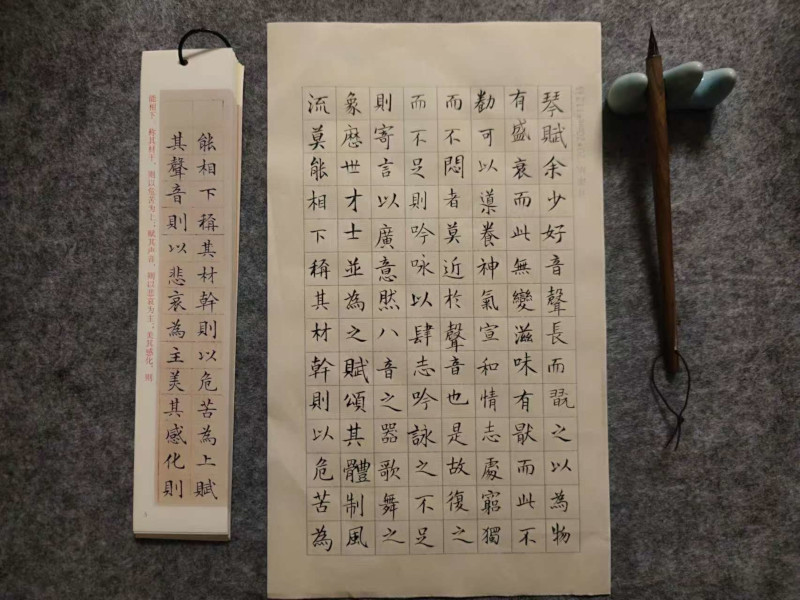 琴賦余少好音聲長而翫之以為物
有盛衰而此無變滋味有猒而此不
勌可以導養神氣宣和情志處窮獨
而不悶者莫近於聲音也是故復之
而不足則吟咏以肆志吟詠之不足
則寄言以廣意然八音之器歌舞之
象歷世才士並為之賦頌其體制風
流莫能相下稱其材幹則以危苦為
能相下稱其材幹則以危苦為上賦
其聲音則以悲哀為主美其感化則
能相下。称其材干,则以危苦为上;赋其声音,则以悲哀为主;美其感化,则